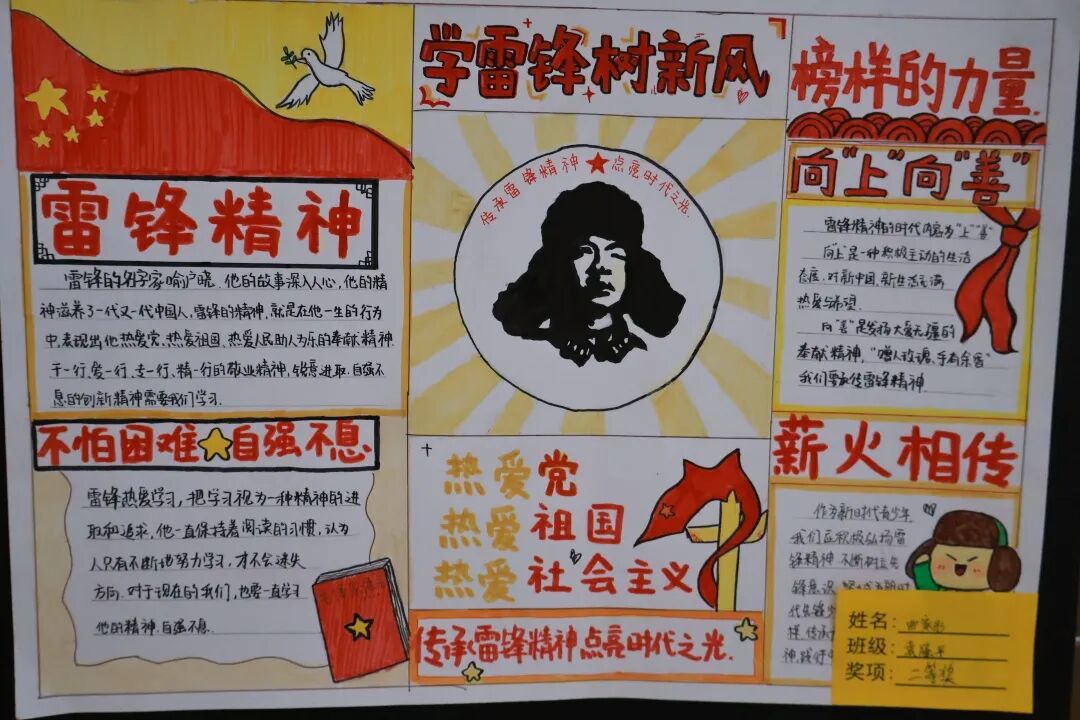 学雷锋树新风
雷锋精神
雷锋的名字家喻户晓.他的故事深入人心,他的精
神滋养了一代又一代中国人,雷锋的精神,就是在他一生的行为
中,表现出他热爱党、热爱祖国、热爱人民助人为乐的奉献精神.
干一行、爱一行、专一行、精一行的敬业精神,锐意进取.自强不
息的创新精神需要我们学习.
不怕困难 自强不息.
雷锋热爱学习,把学习视为一种精神的进
取和追求,他一直保持着阅读的习惯,认为
人只有不断地努力学习,才不会迷失
方向.对于现在的我们,也要一直学习
他的精神.自强不息.
传承雷锋精神 点亮时代之光.
热爱党
热爱祖国
热爱社会主义
传承雷锋精神点亮时代之光.
榜样的力量.
向"上"向"善"
雷锋精神的时代内容为"上""善"
向"上"是一种积极主动的生活
态度.对新中国、新生活充满
热爱与希望.
向"善"是发扬大爱无疆的
奉献精神,"赠人玫瑰,手有余香"
我们要承传雷锋精神.
薪火相传
作为新时代青少年
我们应积极弘扬雷
锋精神 不断树立先
锋意识
代先锋
神,践行
姓名:
班级:
奖项: 二等奖